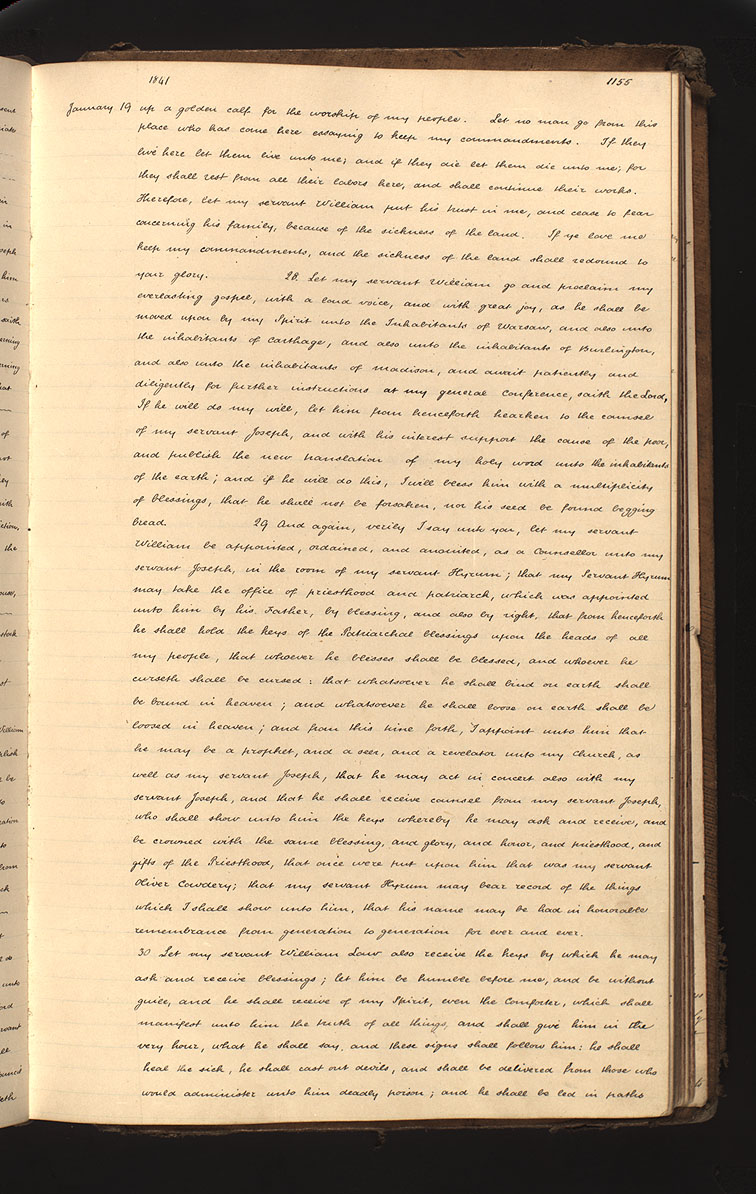 1841 1155
January 19 up a golden calf for the worship of my people. Let no man go from this
place who has come here essaying to keep my commandments. If they
live here let them live unto me; and if they die let them die unto me; for
they shall rest from all their labors here, and shall continue their works.
Therefore, let my servant William put his trust in me, and cease to fear
concerning his family, because of the sickness of the land. If ye love me
keep my commandments, and the sickness of the land shall redound to
your glory. 28 Let my servant William go and proclaim my
everlasting gospel, with a loud voice, and with great joy, as he shall be
moved upon by my Spirit unto the Inhabitants of Warsaw, and also unto
the inhabitants of Carthage, and also unto the inhabitants of Burlington,
and also unto the inhabitants of Madison, and await patiently and
diligently for further instructions at my general Conference, saith the Lord,
If he will do my will, let him from henceforth hearken to the counsel
of my servant Joseph, and with his interest support the cause of the poor,
and publish the new translation of my holy word unto the inhabitants
of the earth; and if he will do this, I will bless him with a multiplicity
of blessings, that he shall not be forsaken, nor his seed be found begging
bread. 29 And again, verily I say unto you, let my servant
William be appointed, ordained, and anointed, as a Counsellor unto my
servant Joseph, in the room of my servant Hyrum; that my Servant Hyrum
may take the office of priesthood and patriarch, which was appointed
unto him by his Father, by blessing, and also by right, that from henceforth
he shall hold the keys of the Patriarchal blessings upon the heads of all
my people, that whoever he blesses shall be blessed, and whoever he
curseth shall be cursed: that whatsoever he shall bind on earth shall
be bound in heaven; and whatsoever he shall loose on earth shall be
loosed in heaven; and from this time forth, I appoint unto him that
he may be a prophet, and a seer, and a revelator unto my Church, as
well as my servant Joseph, that he may act in concert also with my
servant Joseph, and that he shall receive counsel from my servant Joseph,
who shall show unto him the keys whereby he may ask and receive, and
be crowned with the same blessing, and glory, and honor, and priesthood, and
gifts of the Priesthood, that once were put upon him that was my servant
Oliver Cowdery; that my servant Hyrum may bear record of the things
which I shall show unto him, that his name may be had in honorable
remembrance from generation to generation for ever and ever.
30 Let my servant William Law also receive the keys by which he may
ask and receive blessings; let him be humble before me, and be without
guile, and he shall receive of my Spirit, even the Comforter, which shall
manifest unto him the truth of all things, and shall give him in the
very hour, what he shall say, and these signs shall follow him: he shall
heal the sick, he shall cast out devils, and shall be delivered from those who
would administer unto him deadly poison; and he shall be led in paths